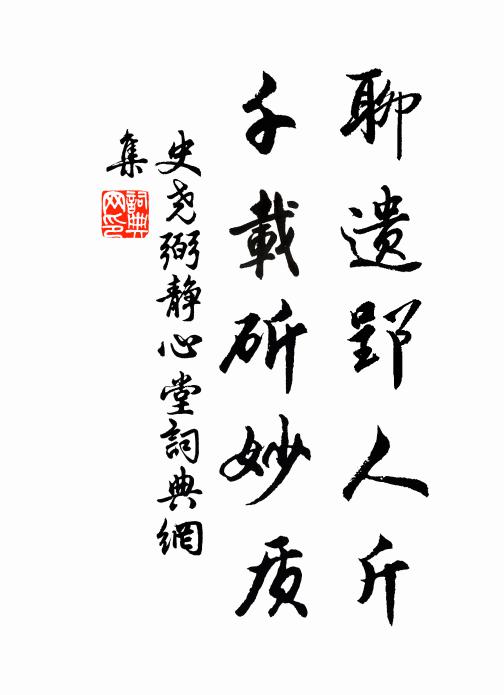 聊遗郢人斤
千載斫妙质
史尧弼静心堂詞典網
集
詞典网印